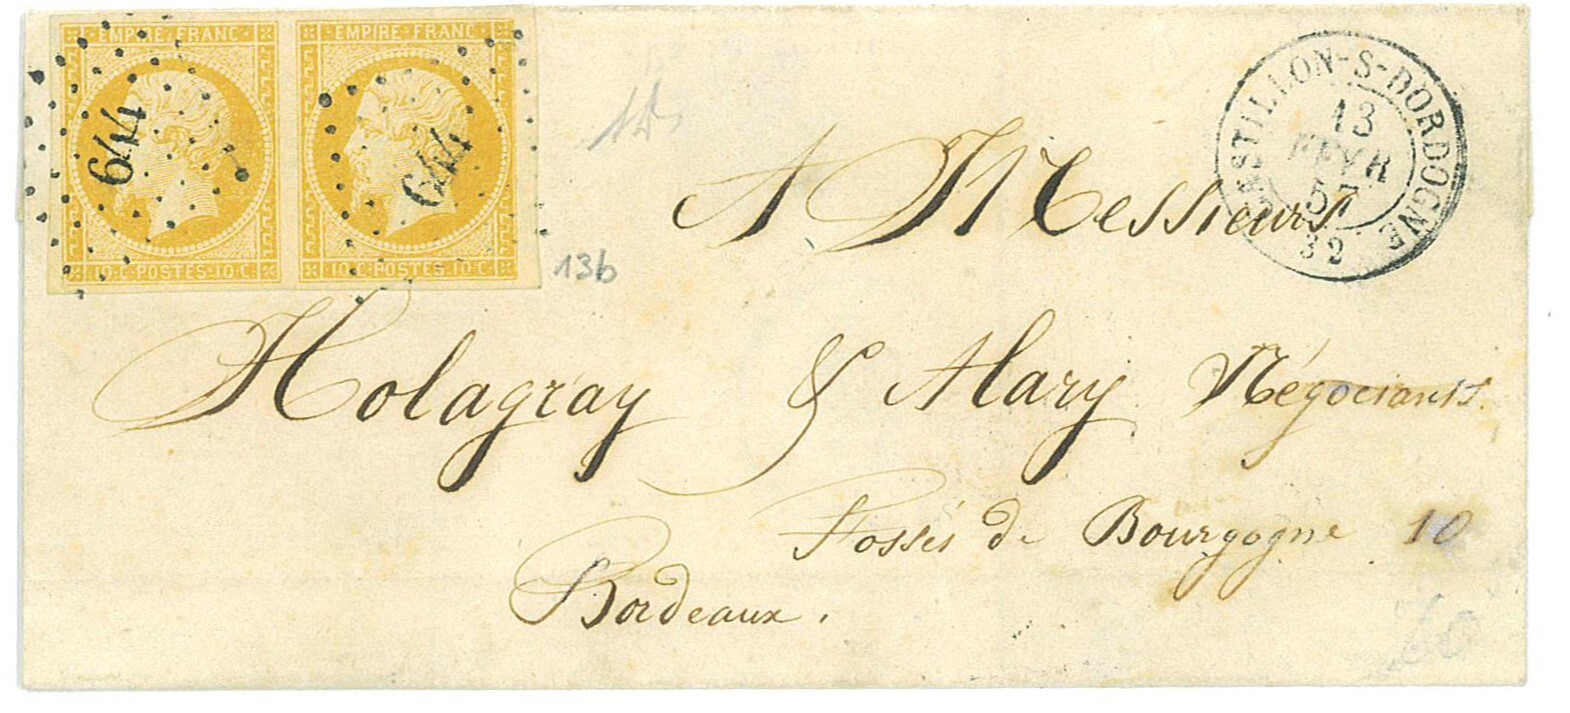 EMPIRE FRANC EMPIRE FRANC
644 644
10·C·POSTES·10·C· 10·C·POSTES·10·C·
CASTILLON-S-DORDOGNE
13
FEVR
57
32
13b
A Messieurs
Holagray & Alary Négociants.
Fossés de Bourgogne 10
Bordeaux.